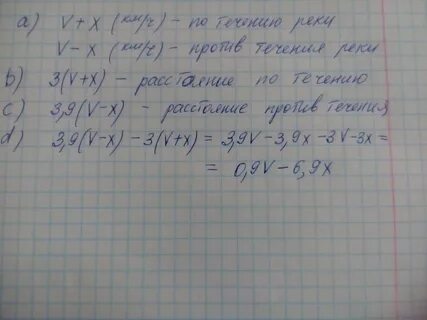 a) V+X (км/ч) – по течению реки
V–X (км/ч) – против течения реки
b) 3(V+X) – расстояние по течению
c) 3,9(V–X) – расстояние против течения
d) 3,9(V–X) – 3(V+X) = 3,9V – 3,9X – 3V – 3X =
= 0,9V – 6,9X